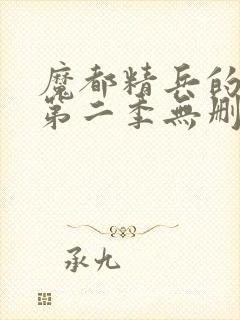 魔都精兵的
第二季無刪
承九